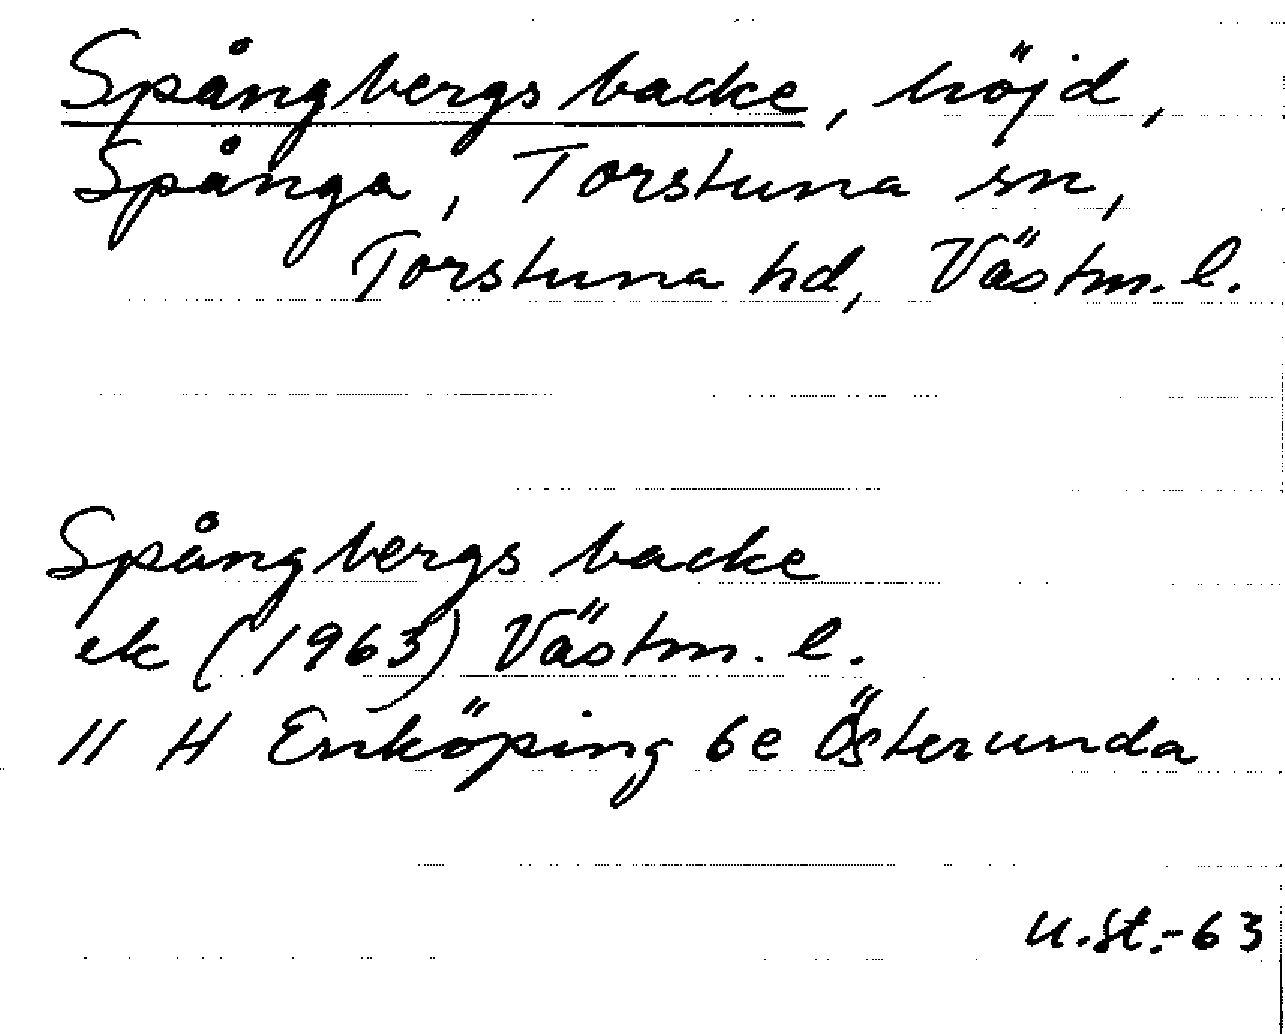 Spångbergs backe, höjd,
Spånga, Torstuna sn,
Torstuna hd, Västm. l.
Spångbergs backe
ek (1963) Västm. l.
11 H Enköping 6e Österunda
U.St.-63